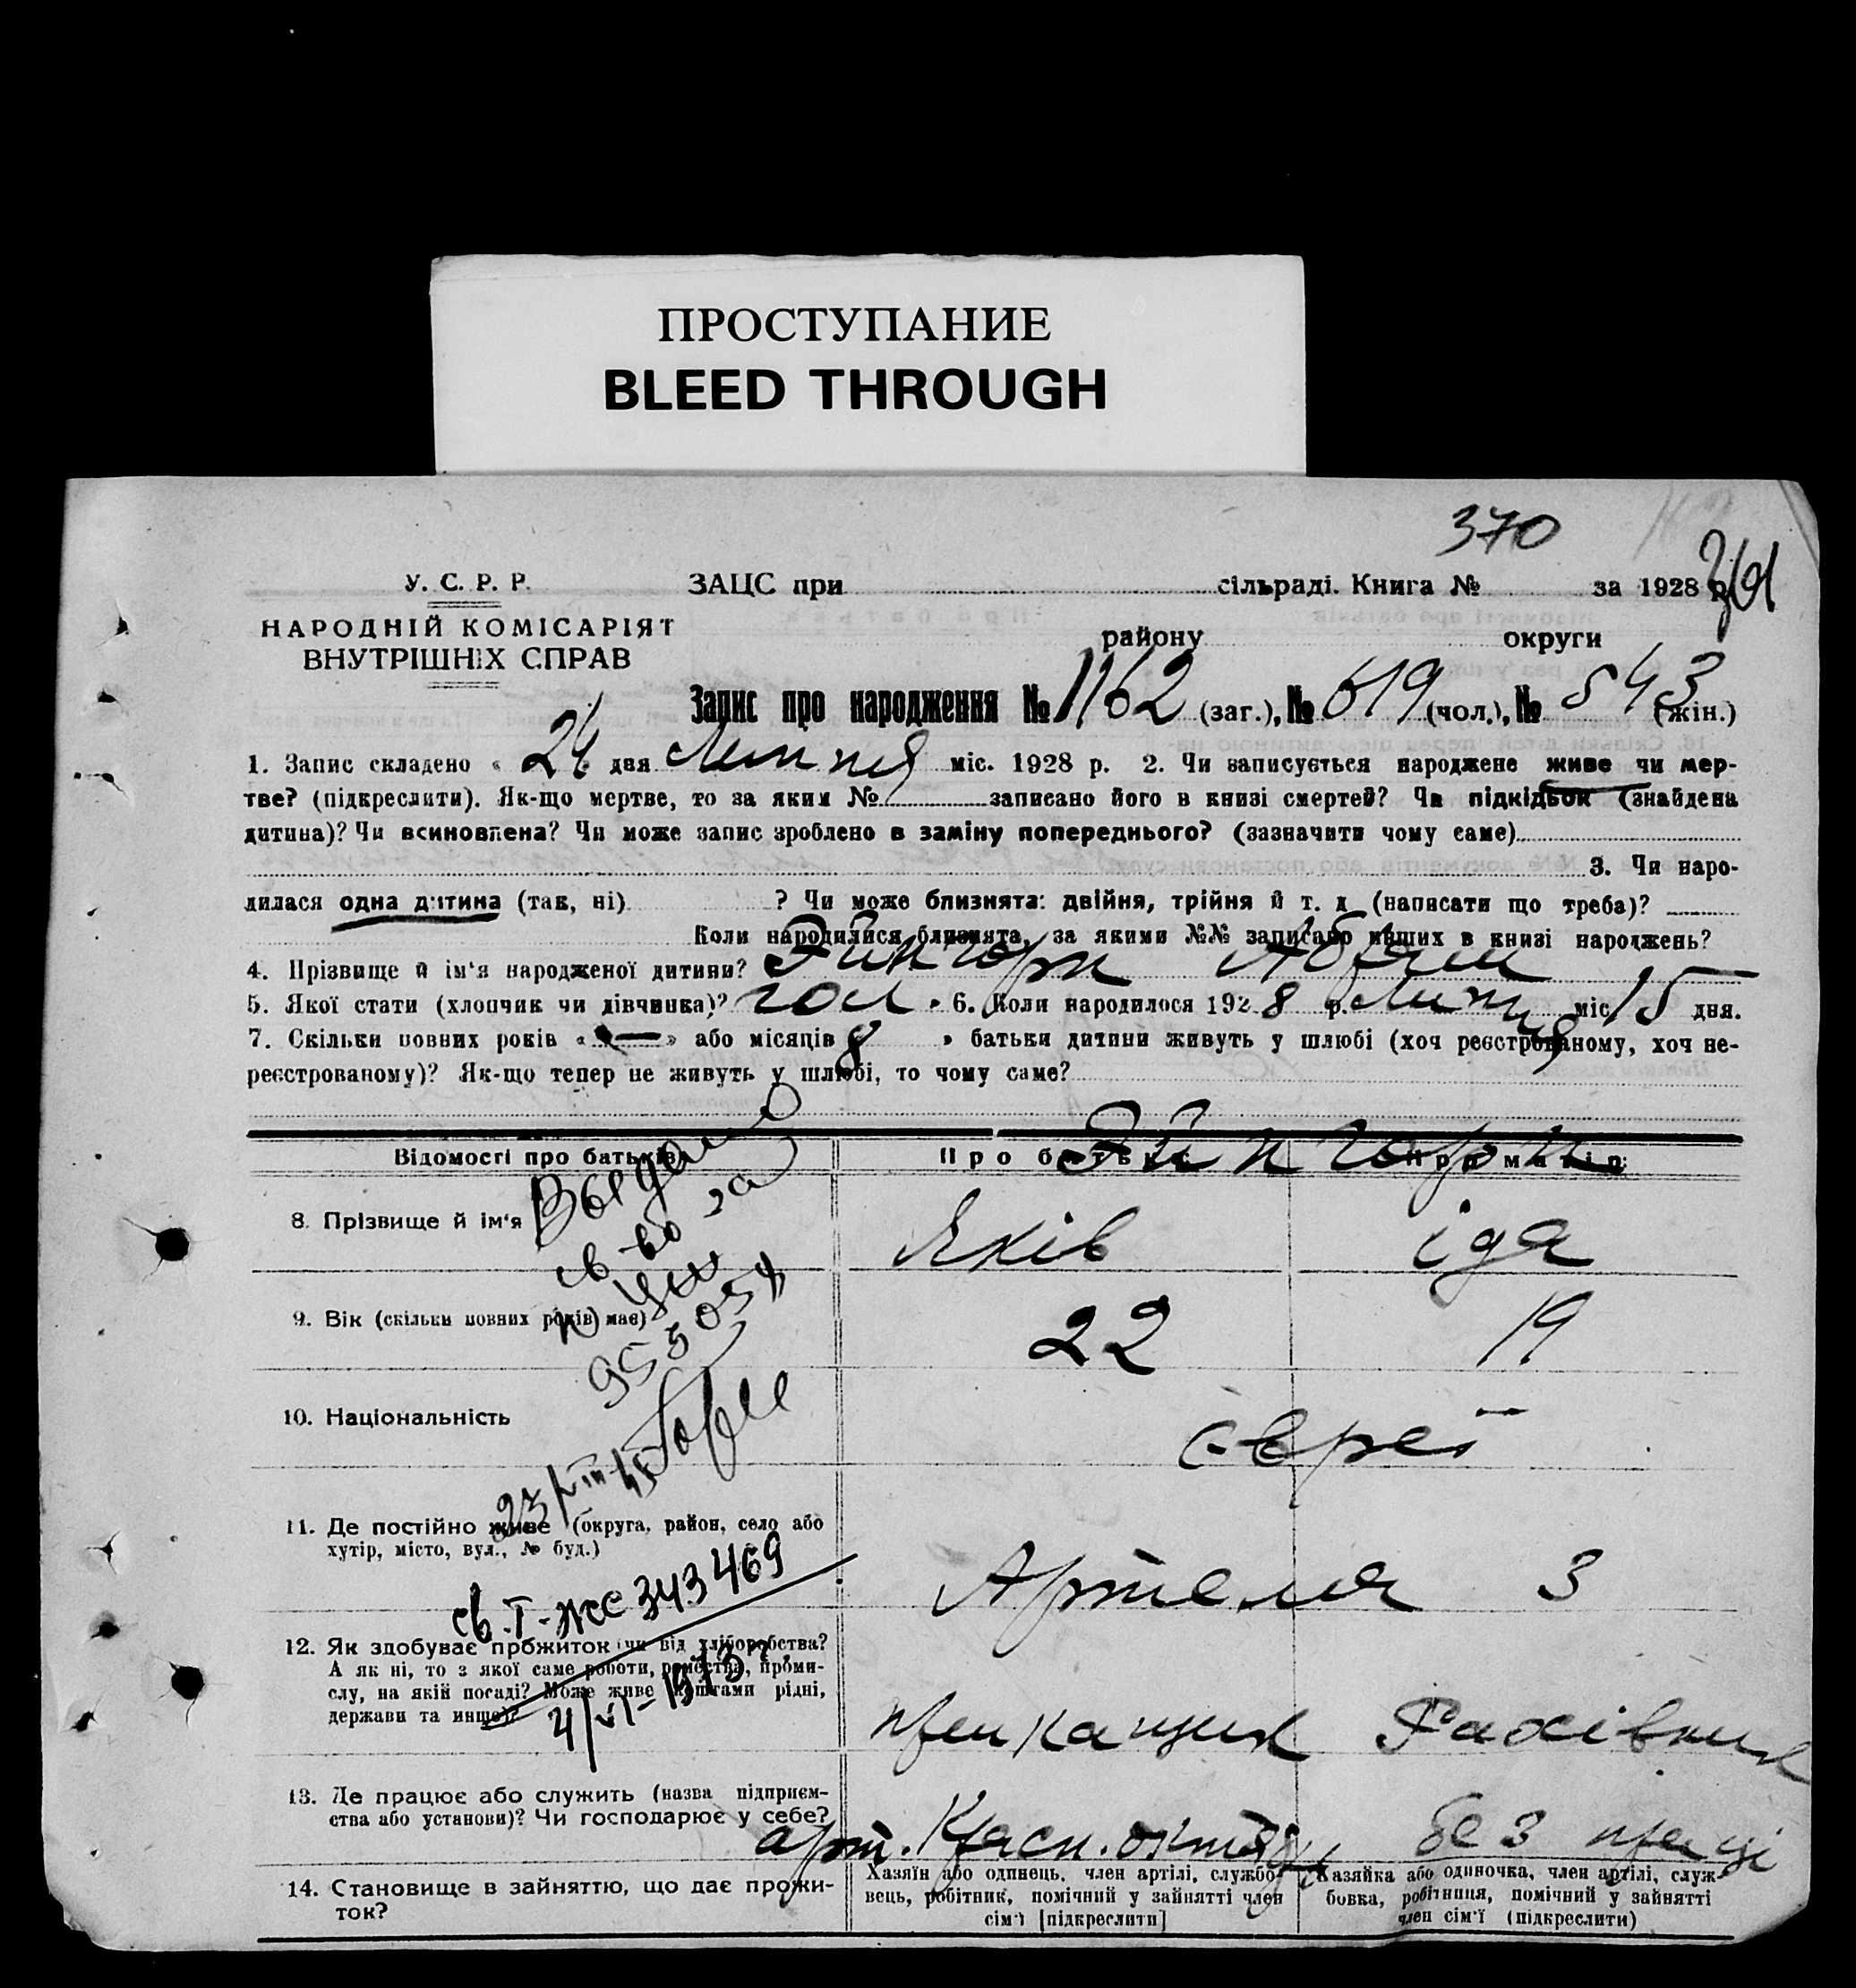 ПРОСТУПАНИЕ
BLEED THROUGH
370
У. С. Р. Р.
НАРОДНІЙ КОМІСАРІЯТ
ВНУТРІШНІХ СПРАВ
ЗАЦС при сільраді. Книга № за 1928 р.
району округи
Запис про народження № 1162 (заг.), № 619 (чол.), № 543 (жін.)
1. Запис складено « 24 » дня Липня міс. 1928 р. 2. Чи записується народжене живе чи мер-
тве? (підкреслити). Як-що мертве, то за яким № записано його в книзі смертей? Чи підкідьок (знайдена
дитина)? Чи всиновлена? Чи може запис зроблено в заміну попереднього? (зазначити чому саме)
3. Чи наро-
дилася одна дитина (так, ні) ? Чи може близнята: двійня, трійня й т. д. (написати що треба)?
Коли народилися близнята, за якими №№ записано инших в книзі народжень?
4. Прізвище й ім'я народженої дитини? Эйнгорн Абрам
5. Якої стати (хлопчик чи дівчинка)? чол. 6. Коли народилося 1928 р. Липня міс. 15 дня.
7. Скільки повних років « — » або місяців 8 » батьки дитини живуть у шлюбі (хоч реєстрованому, хоч не-
реєстрованому)? Як-що тепер не живуть у шлюбі, то чому саме?
Відомості про батьків Про батька Про матір
Эйнгорн
8. Прізвище й ім'я Яків Іда
Выдано
св-во за
№
955054
9. Вік (скільки повних років має) 22 19
10. Національність євреї
23/VIII-45
11. Де постійно живе (округа, район, село або
хутір, місто, вул., № буд.) Артеля 3
св. I-ЖС 343469
4/VI-1973
12. Як здобуває прожиток чи від хліборобства?
А як ні, то з якої саме роботи, ремества, проми-
слу, на якій посаді? Може живе коштами рідні,
держави та инше)?
13. Де працює або служить (назва підприєм-
ства або установи)? Чи господарює у себе? арт. Красн. октябрь без праці
14. Становище в зайняттю, що дає прожи-
ток?
Хазяїн або одинець, член артілі, службо-
вець, робітник, помічний у зайнятті член
сім'ї [підкреслити]
Хазяйка або одиночка, член артілі, служ-
бовка, робітниця, помічний у зайнятті
член сім'ї (підкреслити)